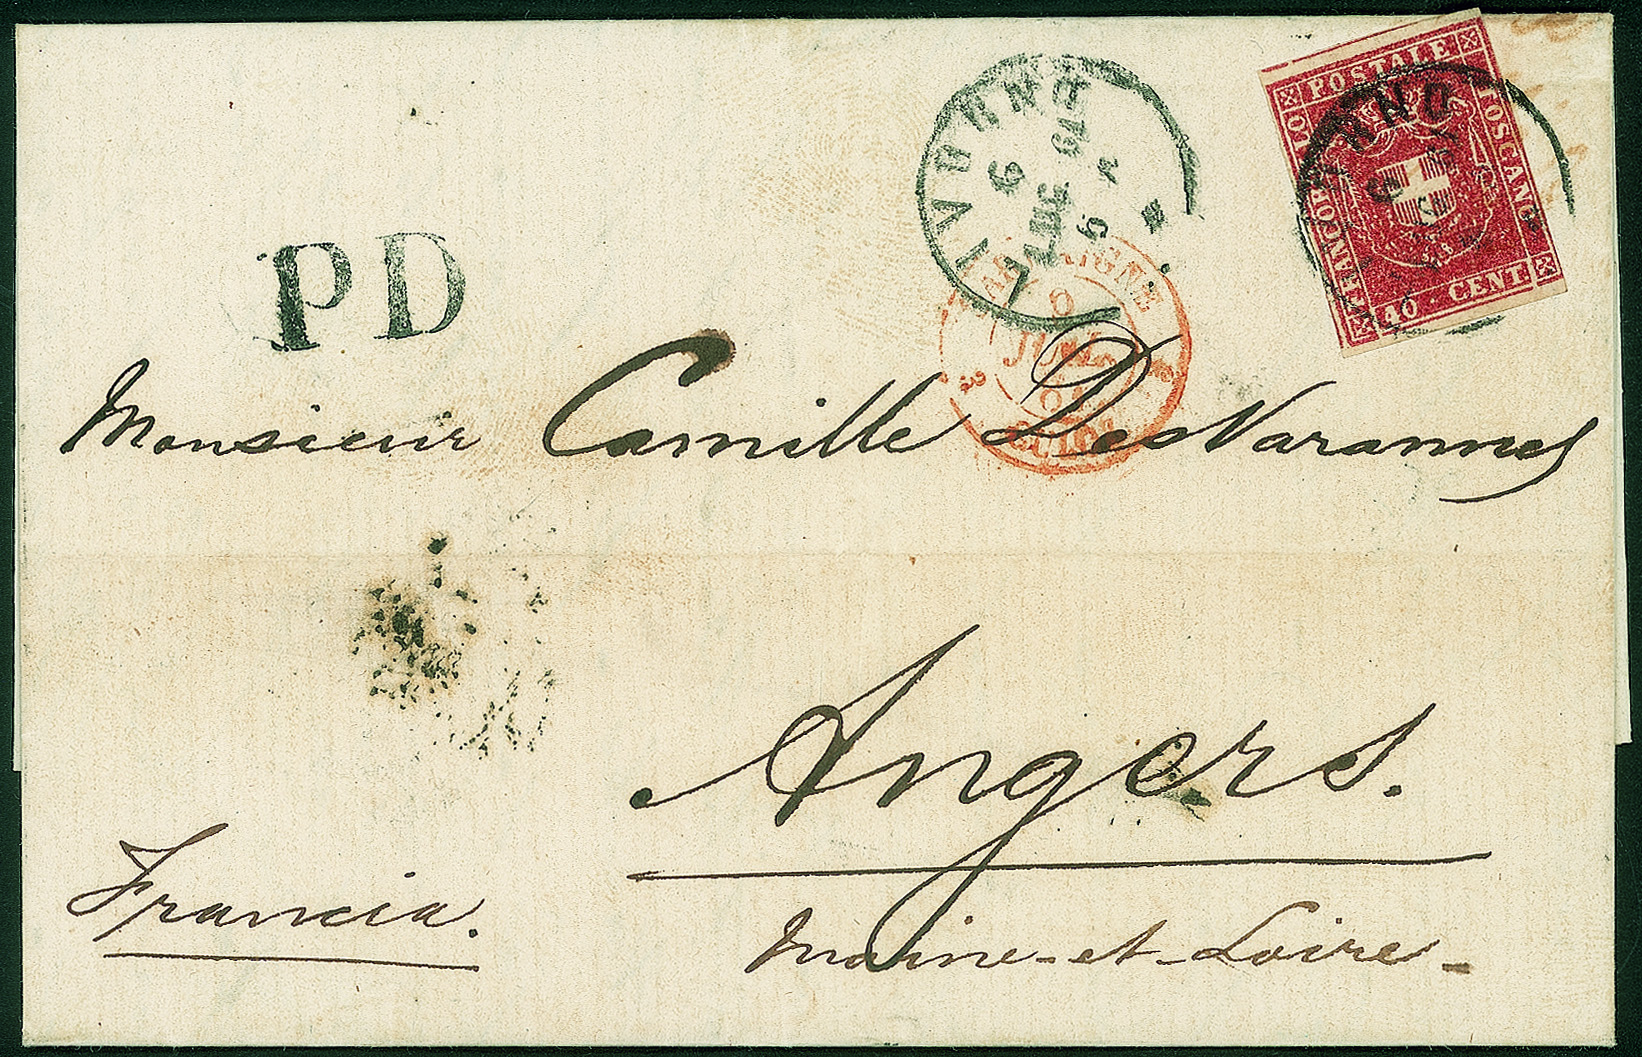 FRANCOBOLLO POSTALE TOSCANO
40 · CENT
LIVORNO
6
PD
8
JUIL
61
CULOZ
Monsieur Camille DesVarannes
Angers.
Francia.
Maine-et-Loire-